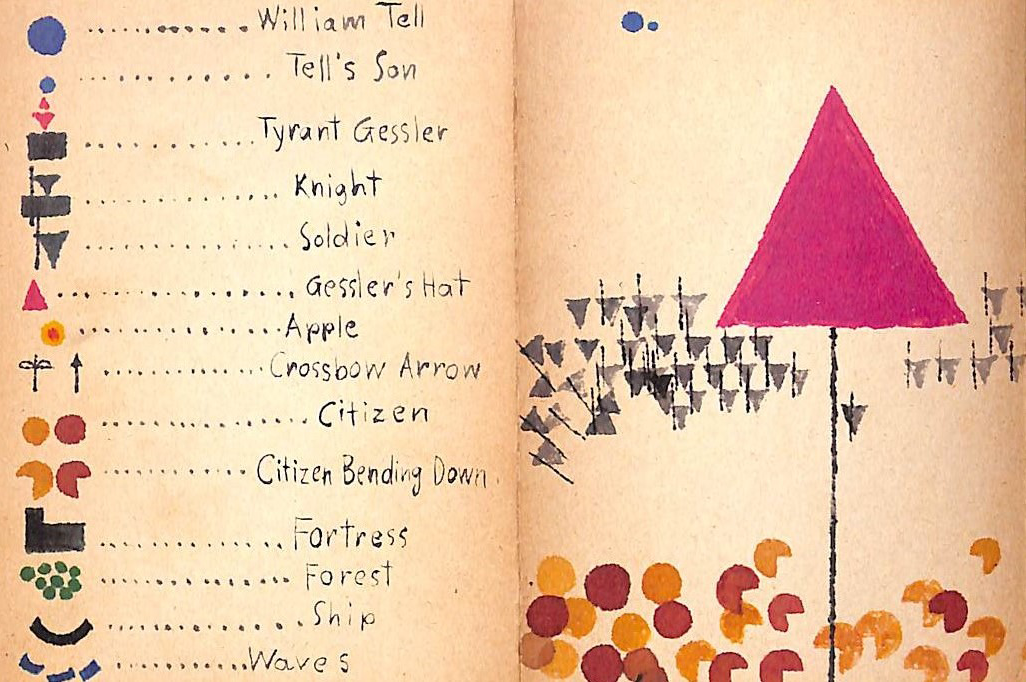 William Tell
Tell's Son
Tyrant Gessler
Knight
Soldier
Gessler's Hat
Apple
Crossbow Arrow
Citizen
Citizen Bending Down
Fortress
Forest
Ship
Waves